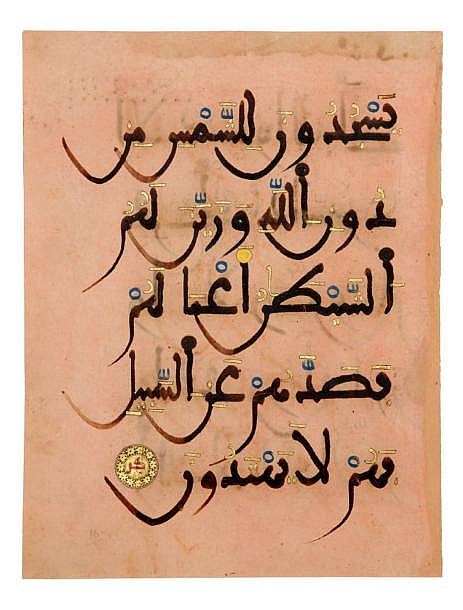 يَسْجُدُونَ لِلشَّمْسِ مِن
دُونِ ٱللَّهِ وَزَيَّنَ لَهُمُ
ٱلشَّيْطَٰنُ أَعْمَالَهُمْ
فَصَدَّهُمْ عَنِ ٱلسَّبِيلِ
فَهُمْ لَا يَهْتَدُونَ